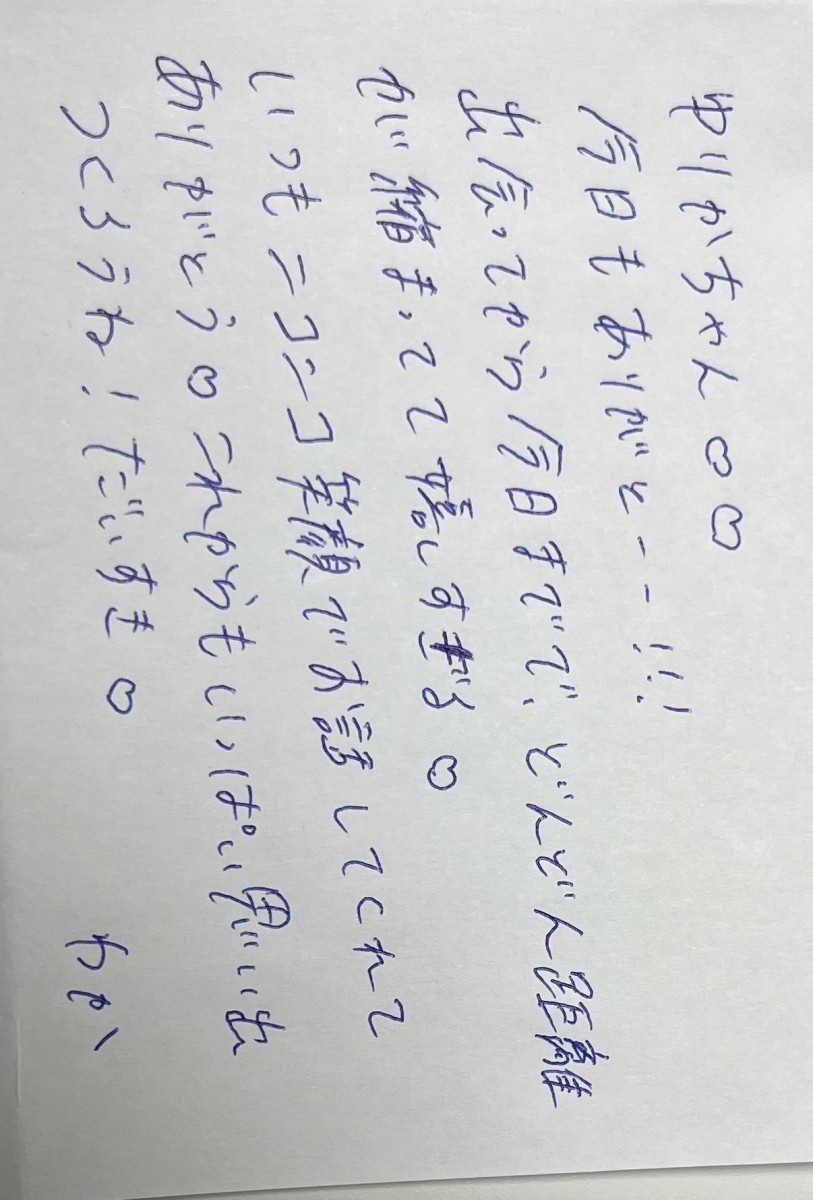 ゆりかちゃん♡♡
今日もありがとーー!!!
出会ってから今日までで、どんどん距離
が縮まってて嬉しすぎる♡
いつもニコニコ笑顔でお話してくれて
ありがとう♡これからもいっぱい思い出
つくろうね！だいすき♡
わか